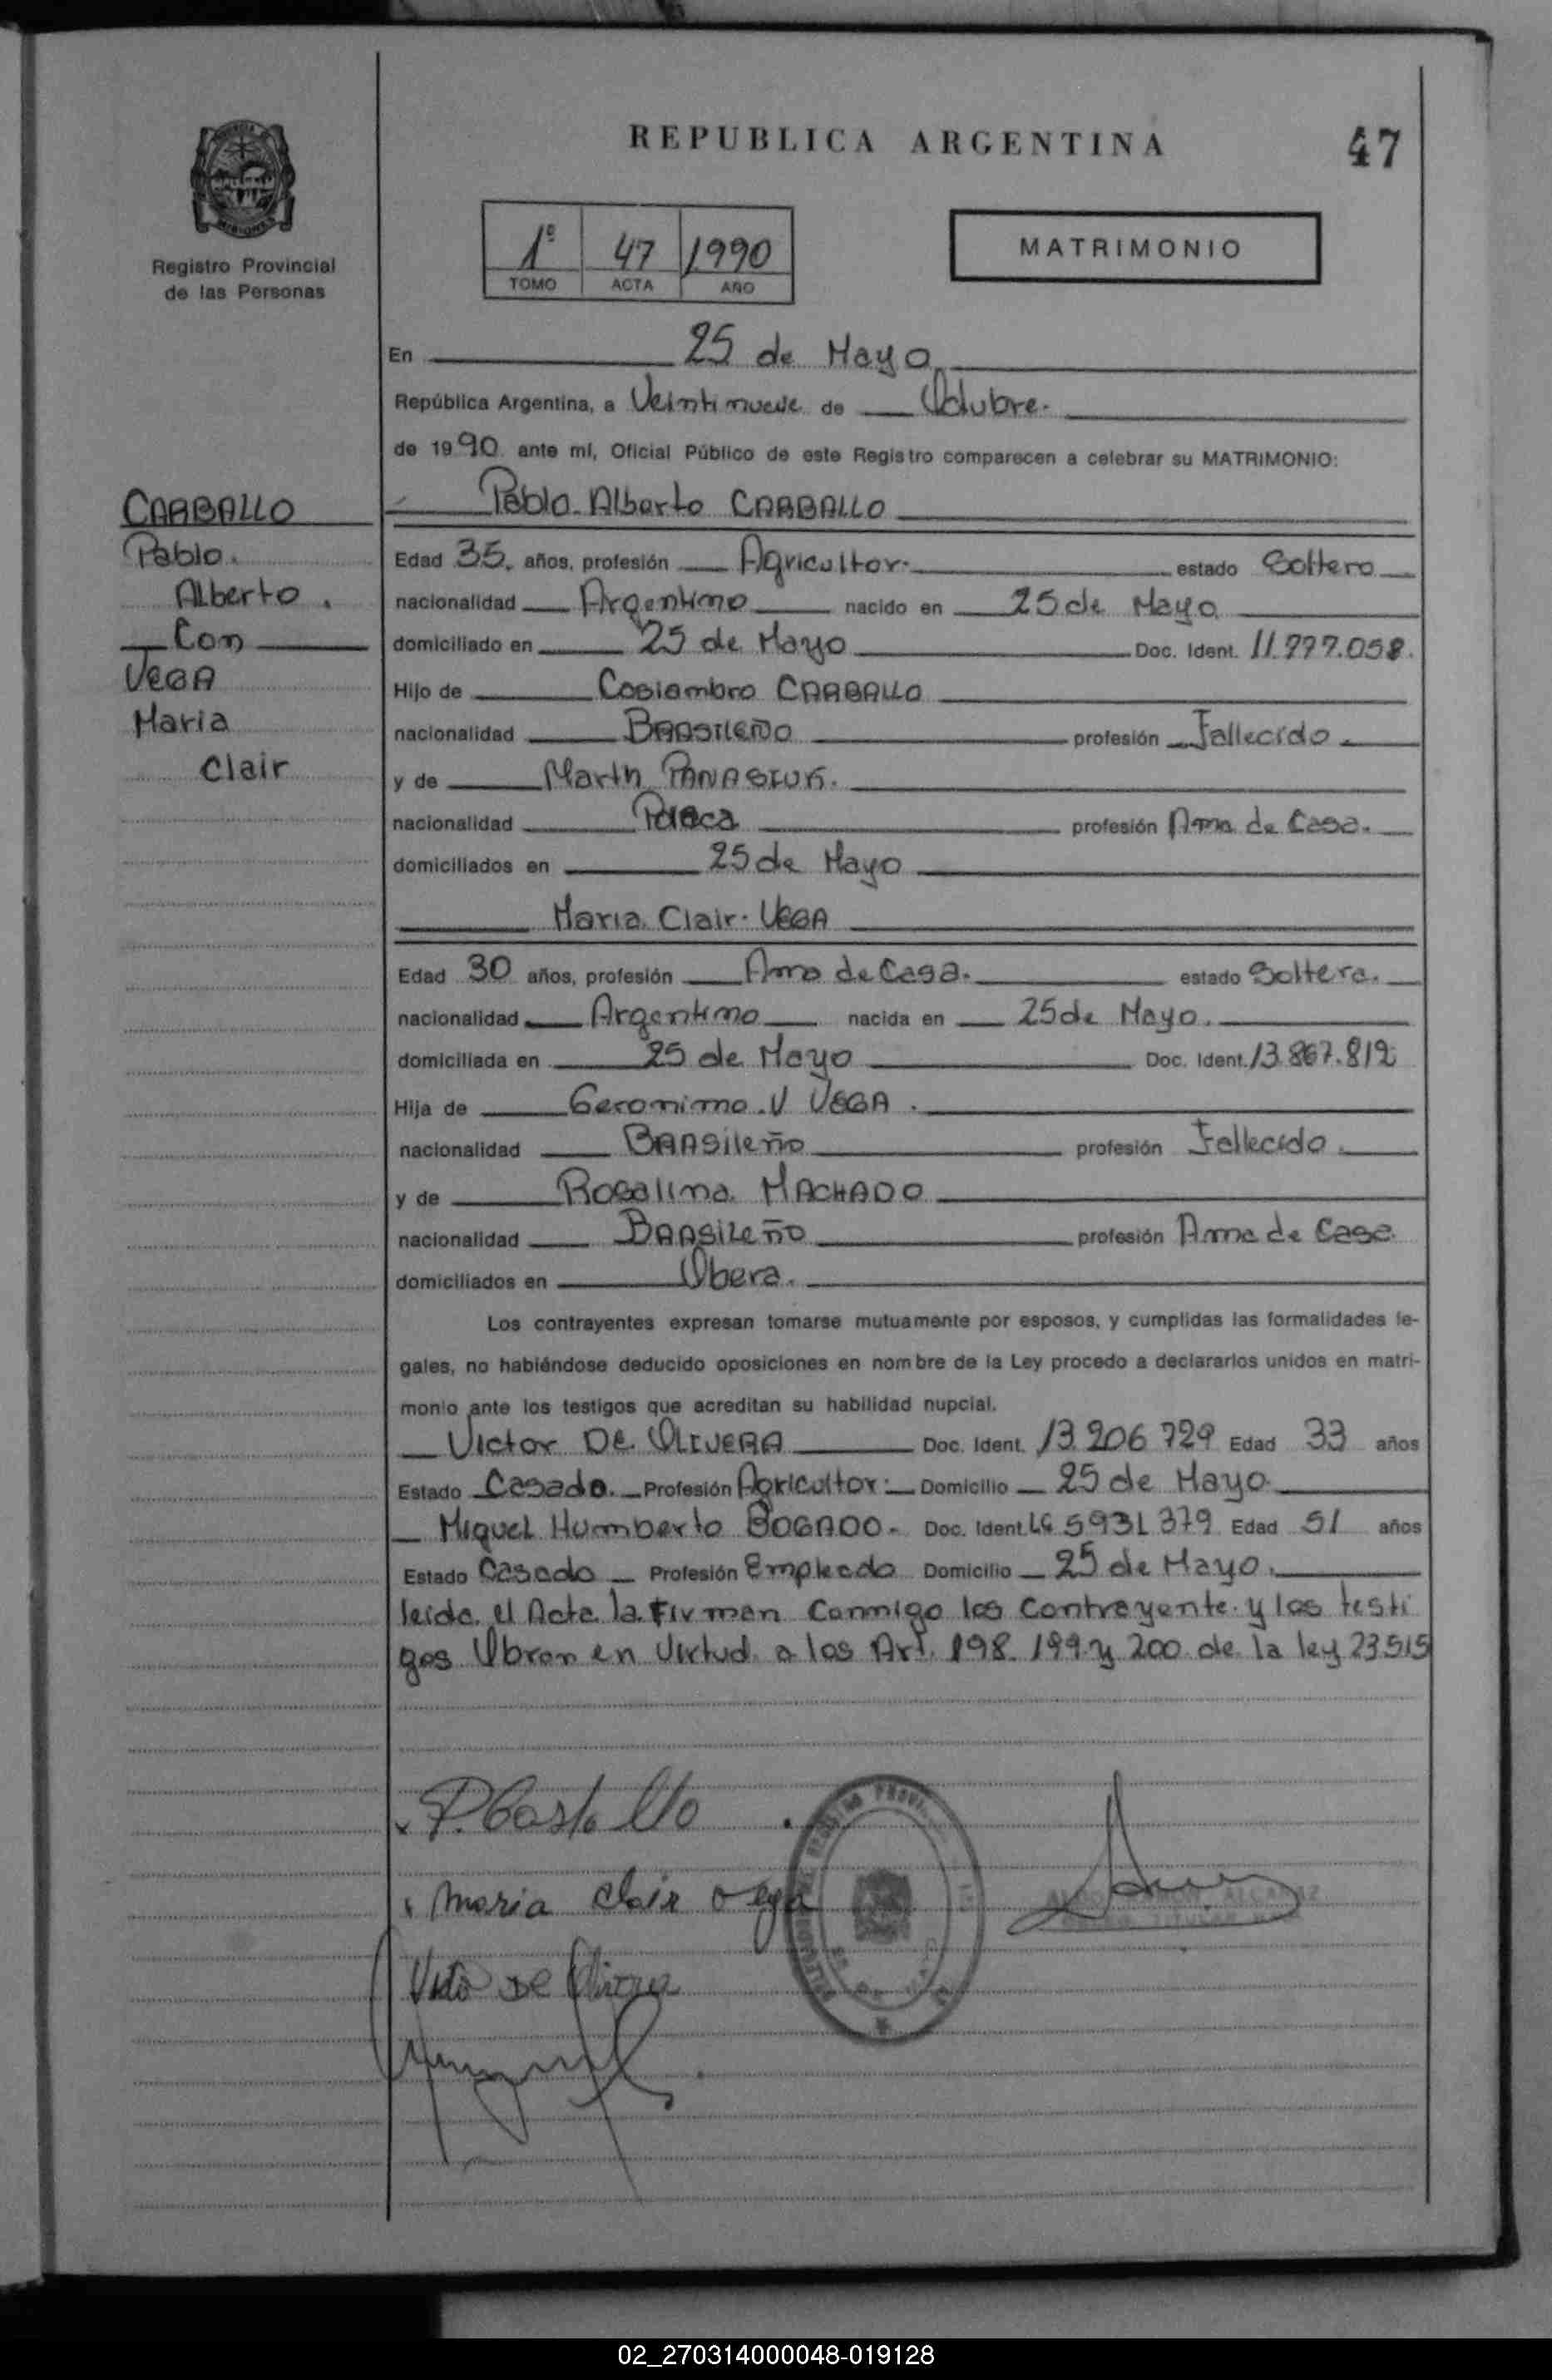 REPUBLICA ARGENTINA
47
Registro Provincial
de las Personas
1º 47 1990
TOMO ACTA AÑO
MATRIMONIO
En 25 de Mayo
República Argentina, a Veintinueve de Octubre.
de 1990 ante mí, Oficial Público de este Registro comparecen a celebrar su MATRIMONIO:
CARBALLO
Pablo.
Alberto.
Con
VEGA
Maria
Clair
Pablo Alberto CARBALLO
Edad 35. años, profesión Agricultor. estado Soltero
nacionalidad Argentino nacido en 25 de Mayo
domiciliado en 25 de Mayo Doc. Ident. 11.777.058.
Hijo de Casiambro CARBALLO
nacionalidad BRASILEÑO profesión Fallecido.
y de Marth PANASIUK.
nacionalidad Polaca profesión Ama de Casa.
domiciliados en 25 de Mayo
Maria Clair. VEGA
Edad 30 años, profesión Ama de Casa. estado Soltera.
nacionalidad Argentino nacida en 25 de Mayo.
domiciliada en 25 de Mayo Doc. Ident. 13.867.812
Hija de Geronimo. V VEGA.
nacionalidad BRASileño profesión Fallecido.
y de Rosalina. MACHADO
nacionalidad BRASILEÑO profesión Ama de Casa.
domiciliados en Obera.
Los contrayentes expresan tomarse mutuamente por esposos, y cumplidas las formalidades le-
gales, no habiéndose deducido oposiciones en nombre de la Ley procedo a declararlos unidos en matri-
monio ante los testigos que acreditan su habilidad nupcial.
Victor DE OLIVERA Doc. Ident. 13 206 729 Edad 33 años
Estado Casado. Profesión Agricultor. Domicilio 25 de Mayo.
Miguel Humberto BOGADO. Doc. Ident. 5931 379 Edad 51 años
Estado Casado Profesión Empleado Domicilio 25 de Mayo.
leida el Acta la Firman Conmigo los Contrayente. y los testi
gos Obran en Virtud. a los Art. 198. 199 y 200 de la ley 23515
Maria Clair Vega
De Olivera
ALCARAZ
02_270314000048-019128